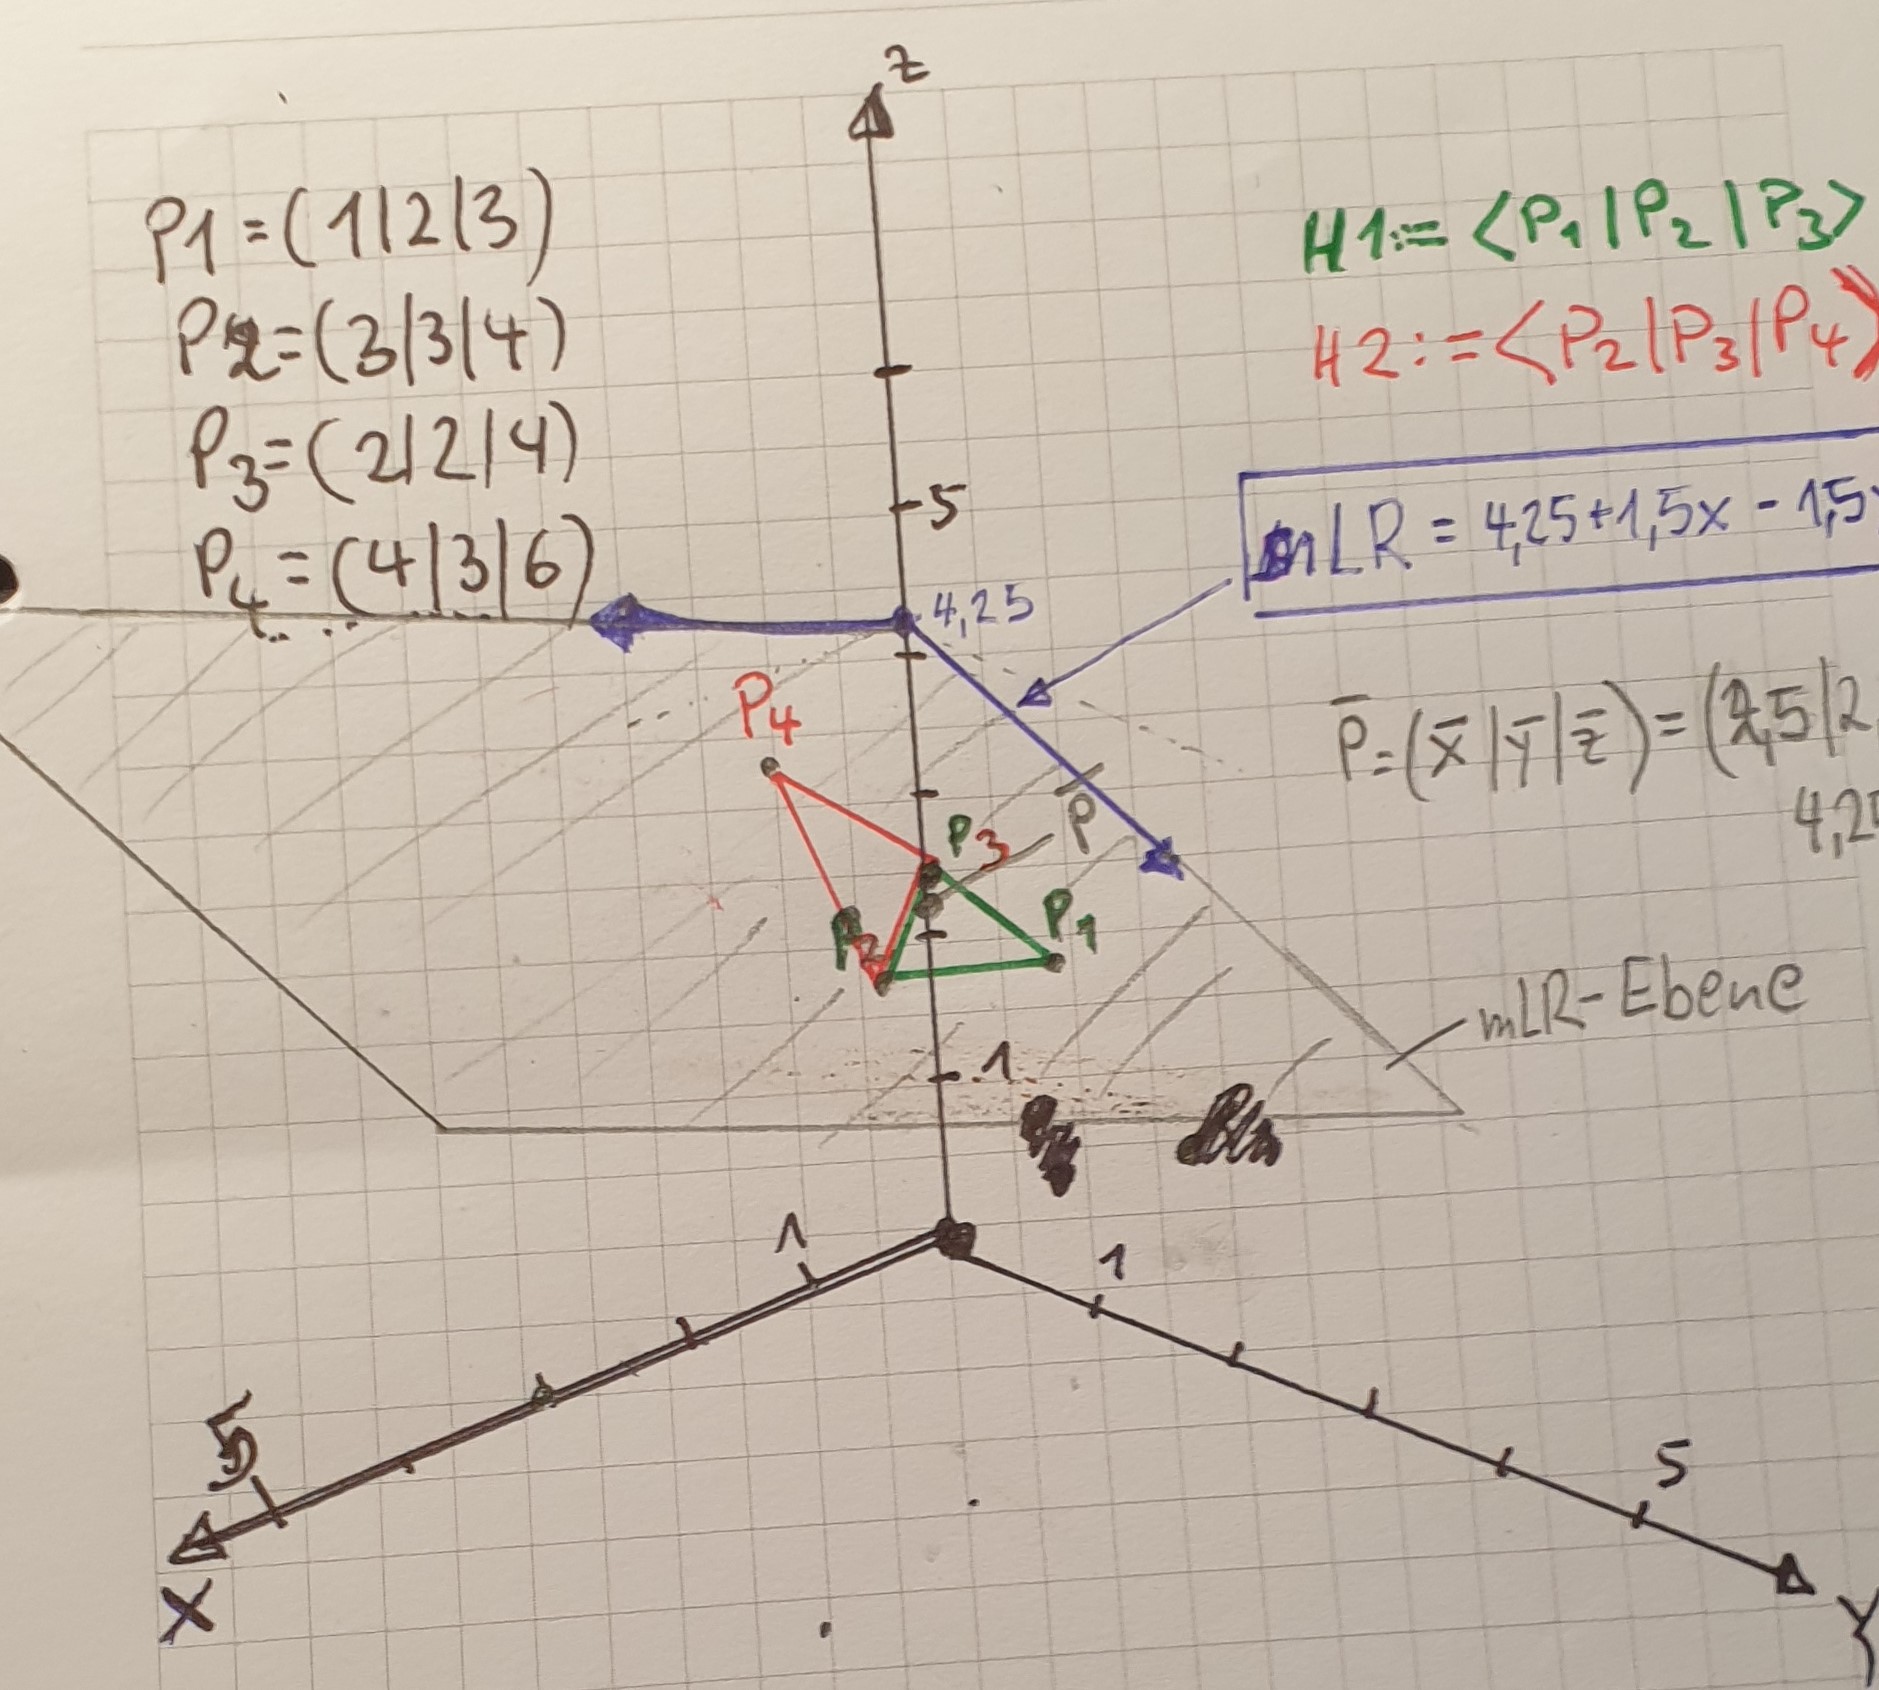 z
P1 = (1|2|3)
P2 = (3|3|4)
P3 = (2|2|4)
P4 = (4|3|6)
H1:= <P1|P2|P3>
H2:= <P2|P3|P4>
5
mLR = 4,25+1,5x - 1,5
4,25
P4
P̄ = (x̄|ȳ|z̄) = (2,5|2,
4,25
P3
P̄
P2
P1
mLR-Ebene
1
1
1
5
5
X
Y